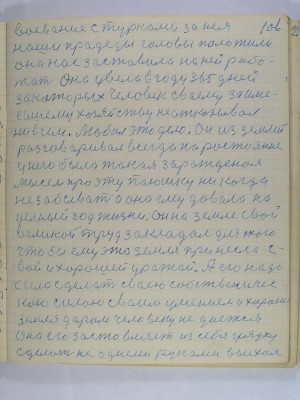 106
воевания с турками за нея
наши прадеды головы положили
она нас заставила на ней рабо-
тат Она цвела в году 365 дней
за которых человек своему
ешнему хозяйству не отказывал
ни в чем. Любил это дело. Он из землей
разговаривал всегда на ростояние
у него была такая зараждения
мысел про эту пашку ни когда
не забсиват а она ему довала на
целный год жизни. Он на земле свой
великой труд закладал для того
что бы ему эта земля принесла с-
вой и хороший урожай. А его надо
сило зделать своею собственичес
кою силою своим умением и хараши
земля даром человеку не дается
Она его заставляет из себя грядку
сделат не однеми руками